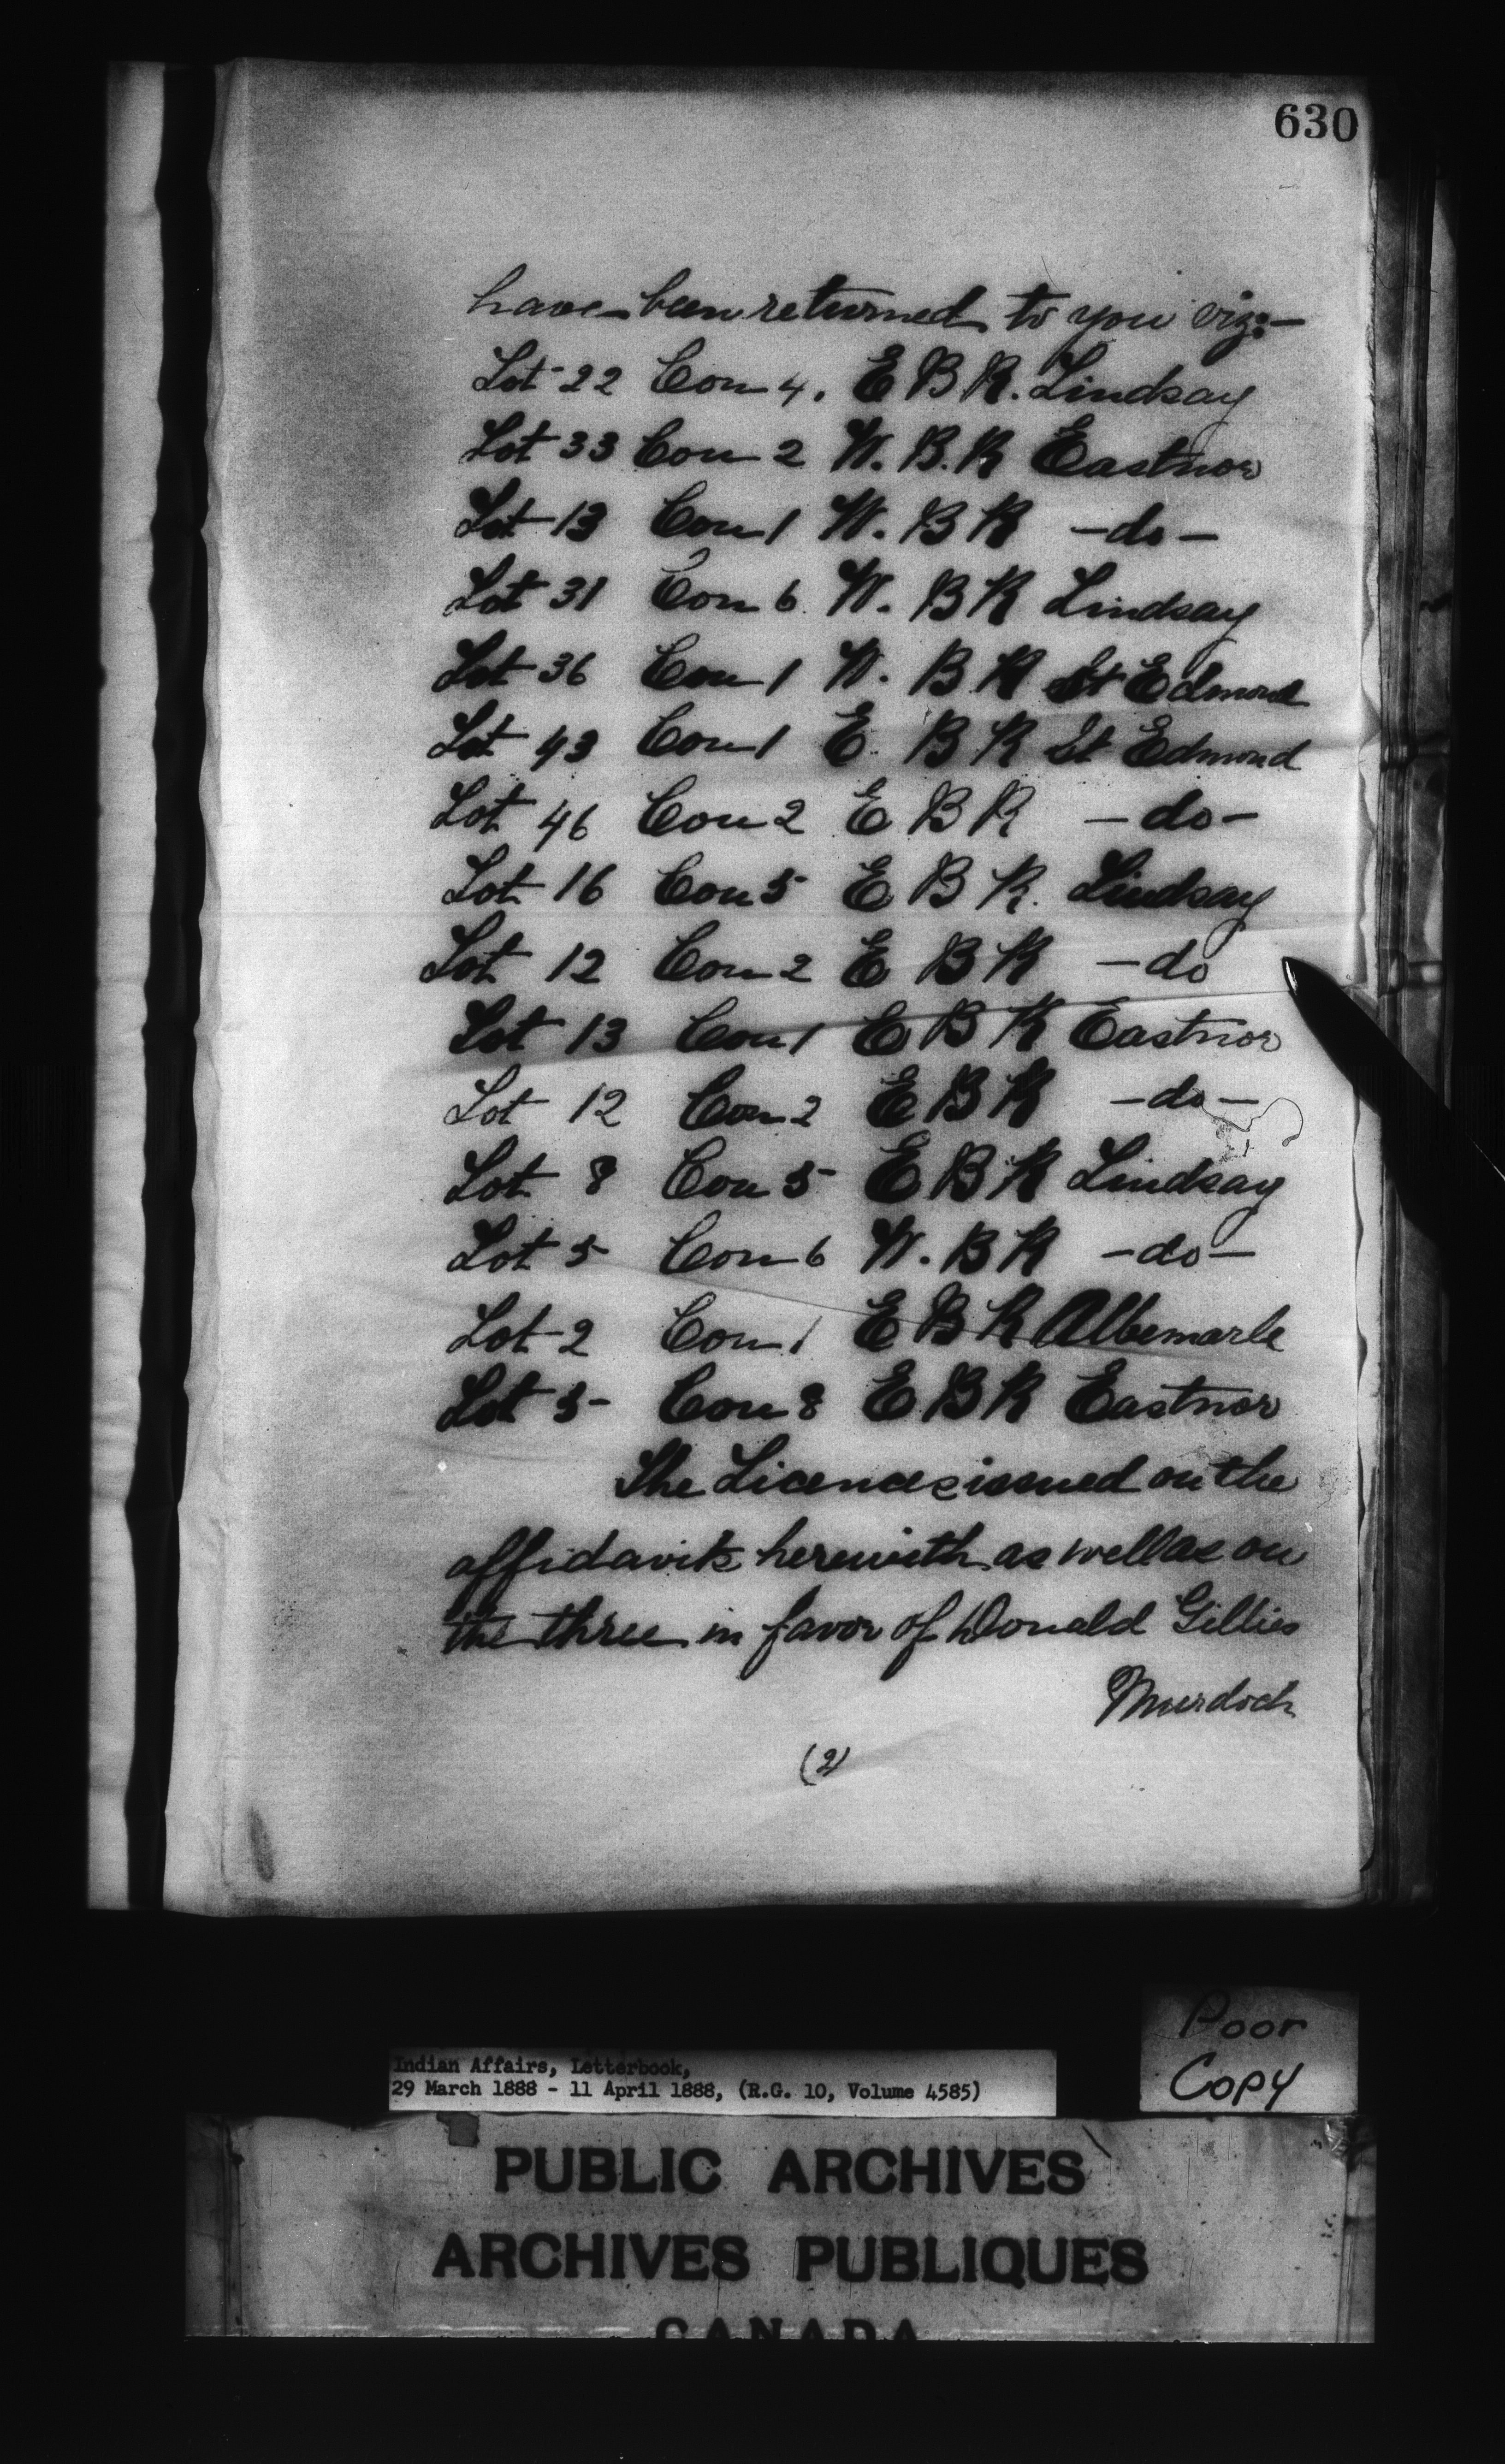 630
have been returned to you viz:—
Lot 22 Con 4. E B R. Lindsay
Lot 33 Con 2 W. B. R Eastnor
Lot 13 Con 1 W. B R —do—
Lot 31 Con 6 W. B R Lindsay
Lot 36 Con 1 W. B R St Edmond
Lot 43 Con 1 E. B R St Edmond
Lot 46 Con 2 E B R —do—
Lot 16 Con 5 E B R. Lindsay
Lot 12 Con 2 E B R —do
Lot 13 Con 1 E B R Eastnor
Lot 12 Con 2 E B R —do—
Lot 8 Con 5 E B R Lindsay
Lot 5 Con 6 W. B R —do—
Lot 2 Con 1 E B R Albemarle
Lot 5 Con 8 E B R Eastnor
The Licences issued on the
affidavits herewith as well as on
the three in favor of Donald Gillies
Murdoch
(2)
Poor
Copy
Indian Affairs, Letterbook,
29 March 1888 - 11 April 1888, (R.G. 10, Volume 4585)
PUBLIC ARCHIVES
ARCHIVES PUBLIQUES
CANADA